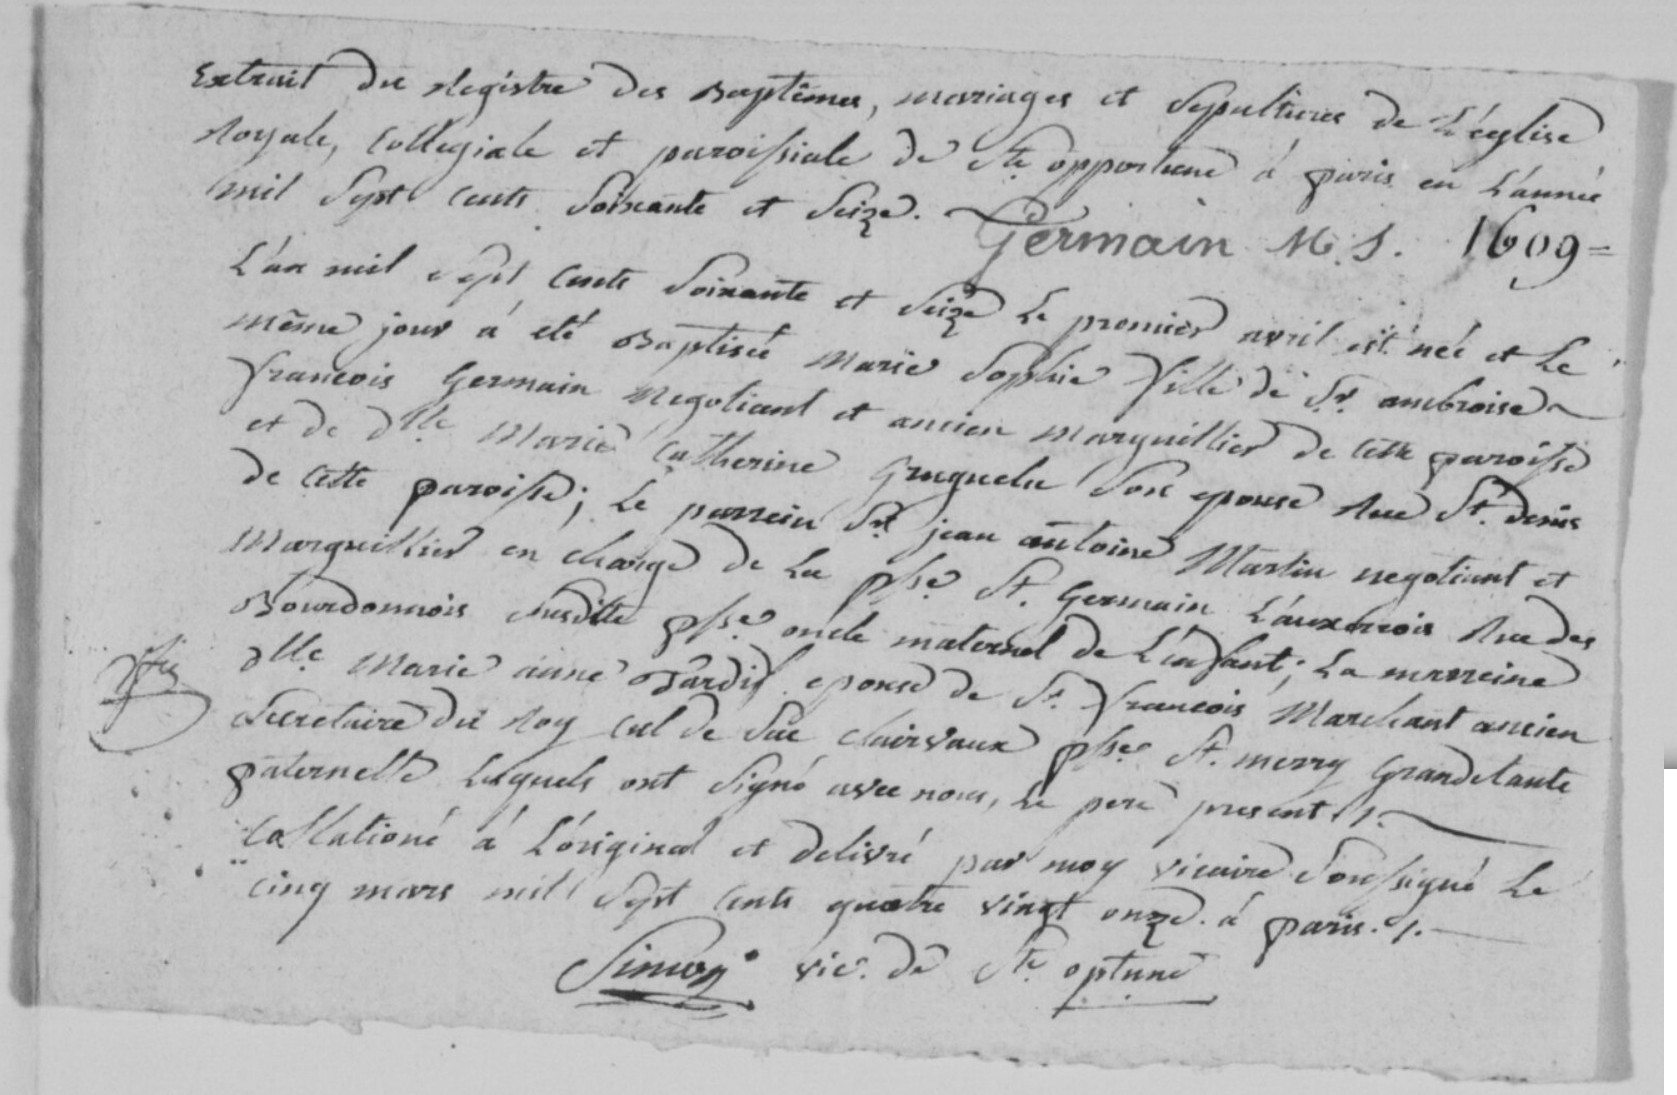 Extrait du Registre des Baptêmes, mariages et Sepultures de L'église
Royale, Collegiale et paroissiale de Ste opportune à paris en L'année
mil Sept cents Soixante et Seize.
Germain M. S. 1609 =
L'an mil sept cents Soixante et Seize Le premier avril est née et Le
même jour à eté Baptisée Marie Sophie fille de Sr. ambroise
francois Germain Negotiant et ancien Marguillier de cette paroisse
et de dlle Marie Catherine son epouse Rue St. denis
de cette paroisse; Le parrein Sr. jean antoine Martin negotiant et
Marguillier en charge de La psse St. Germain L'auxerrois Rue des
Bourdonnois susditte psse oncle maternel de L'enfant; La marreine
dlle Marie anne Tardif epouse de Sr. francois Marchant ancien
Secretaire du Roy cul de Sac clairvaux psse St. merry Grandetante
paternelle Lesquels ont Signé avec nous, Le pere present ./.
Collationé à L'original et delivré par moy vicaire Soussigné Le
cinq mars mil Sept cents quatre vingt onze. à paris. ./.
Simon vic. de Ste optune